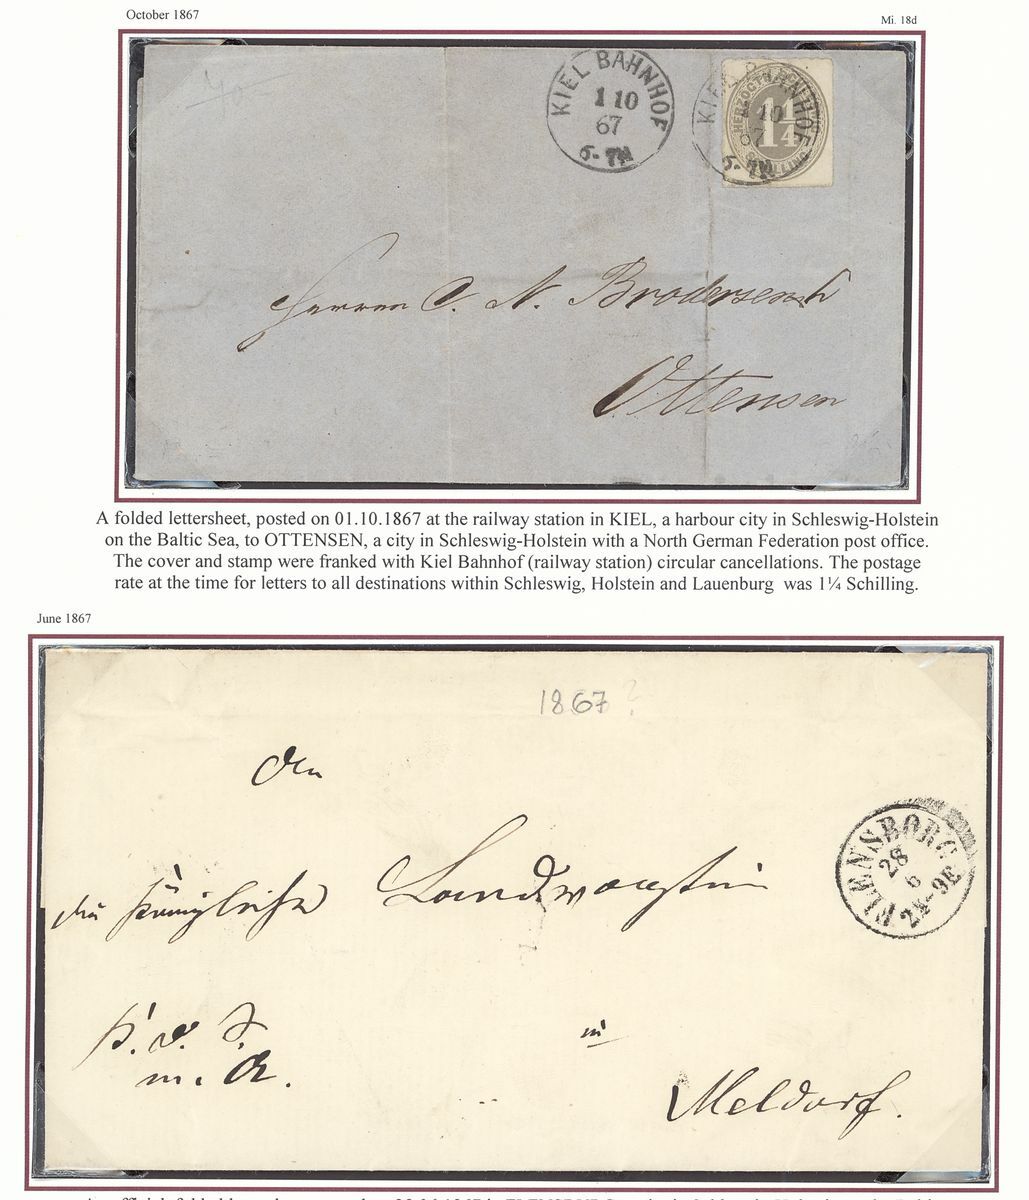 October 1867
Mi. 18d
40
KIEL BAHNHOF
1 10
67
6-7N
KIEL BAHNHOF
1 10
67
6-7N
HERZOGTH.
1 1/4
SCHILLING
Herren C. N. Brodersen
Ottensen
A folded lettersheet, posted on 01.10.1867 at the railway station in KIEL, a harbour city in Schleswig-Holstein
on the Baltic Sea, to OTTENSEN, a city in Schleswig-Holstein with a North German Federation post office.
The cover and stamp were franked with Kiel Bahnhof (railway station) circular cancellations. The postage
rate at the time for letters to all destinations within Schleswig, Holstein and Lauenburg was 1¼ Schilling.
June 1867
1867 ?
An
die Königliche Landvogtei
FLENSBORG
28
6
K. d. S.
m. A.
in
Meldorf.